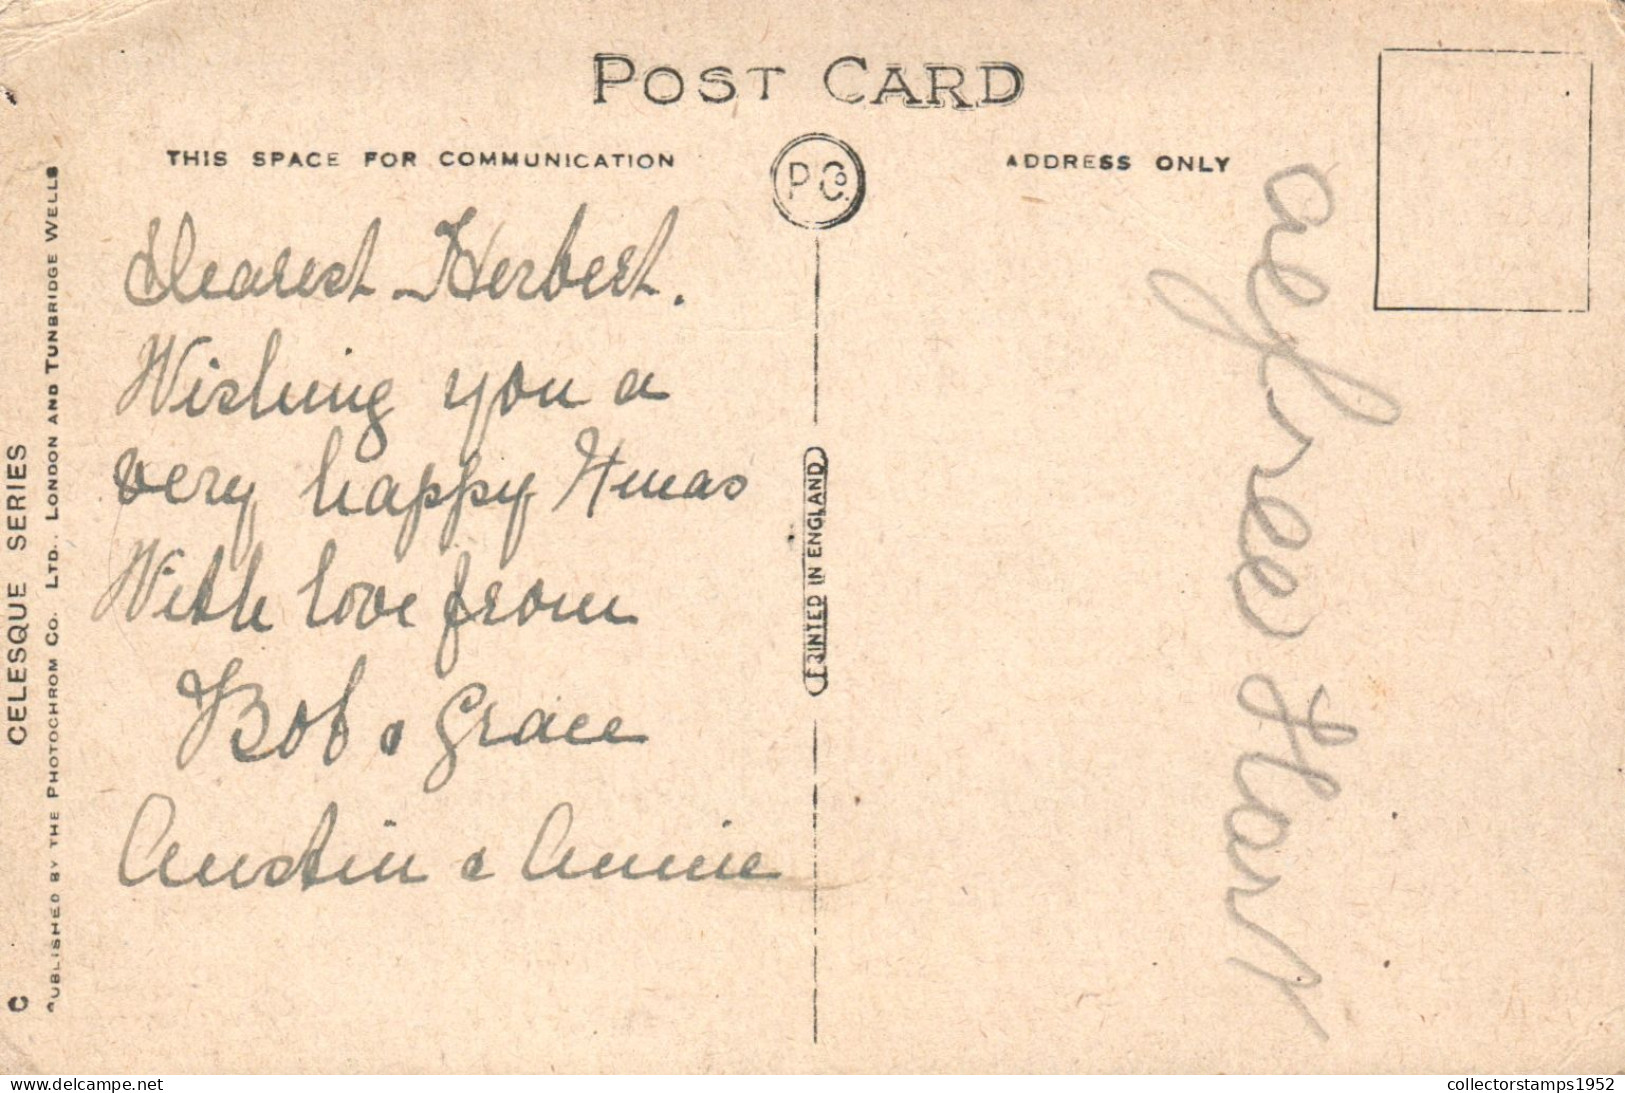 POST CARD
THIS SPACE FOR COMMUNICATION
ADDRESS ONLY
P Co.
Dearest Herbert.
Wishing you a
very happy Xmas
With love from
Bob & Grace
Austin & Annie
PRINTED IN ENGLAND
Hart
CELESQUE SERIES
PUBLISHED BY THE PHOTOCHROM CO. LTD., LONDON AND TUNBRIDGE WELLS
C
delcampe.net
collectorstamps1952